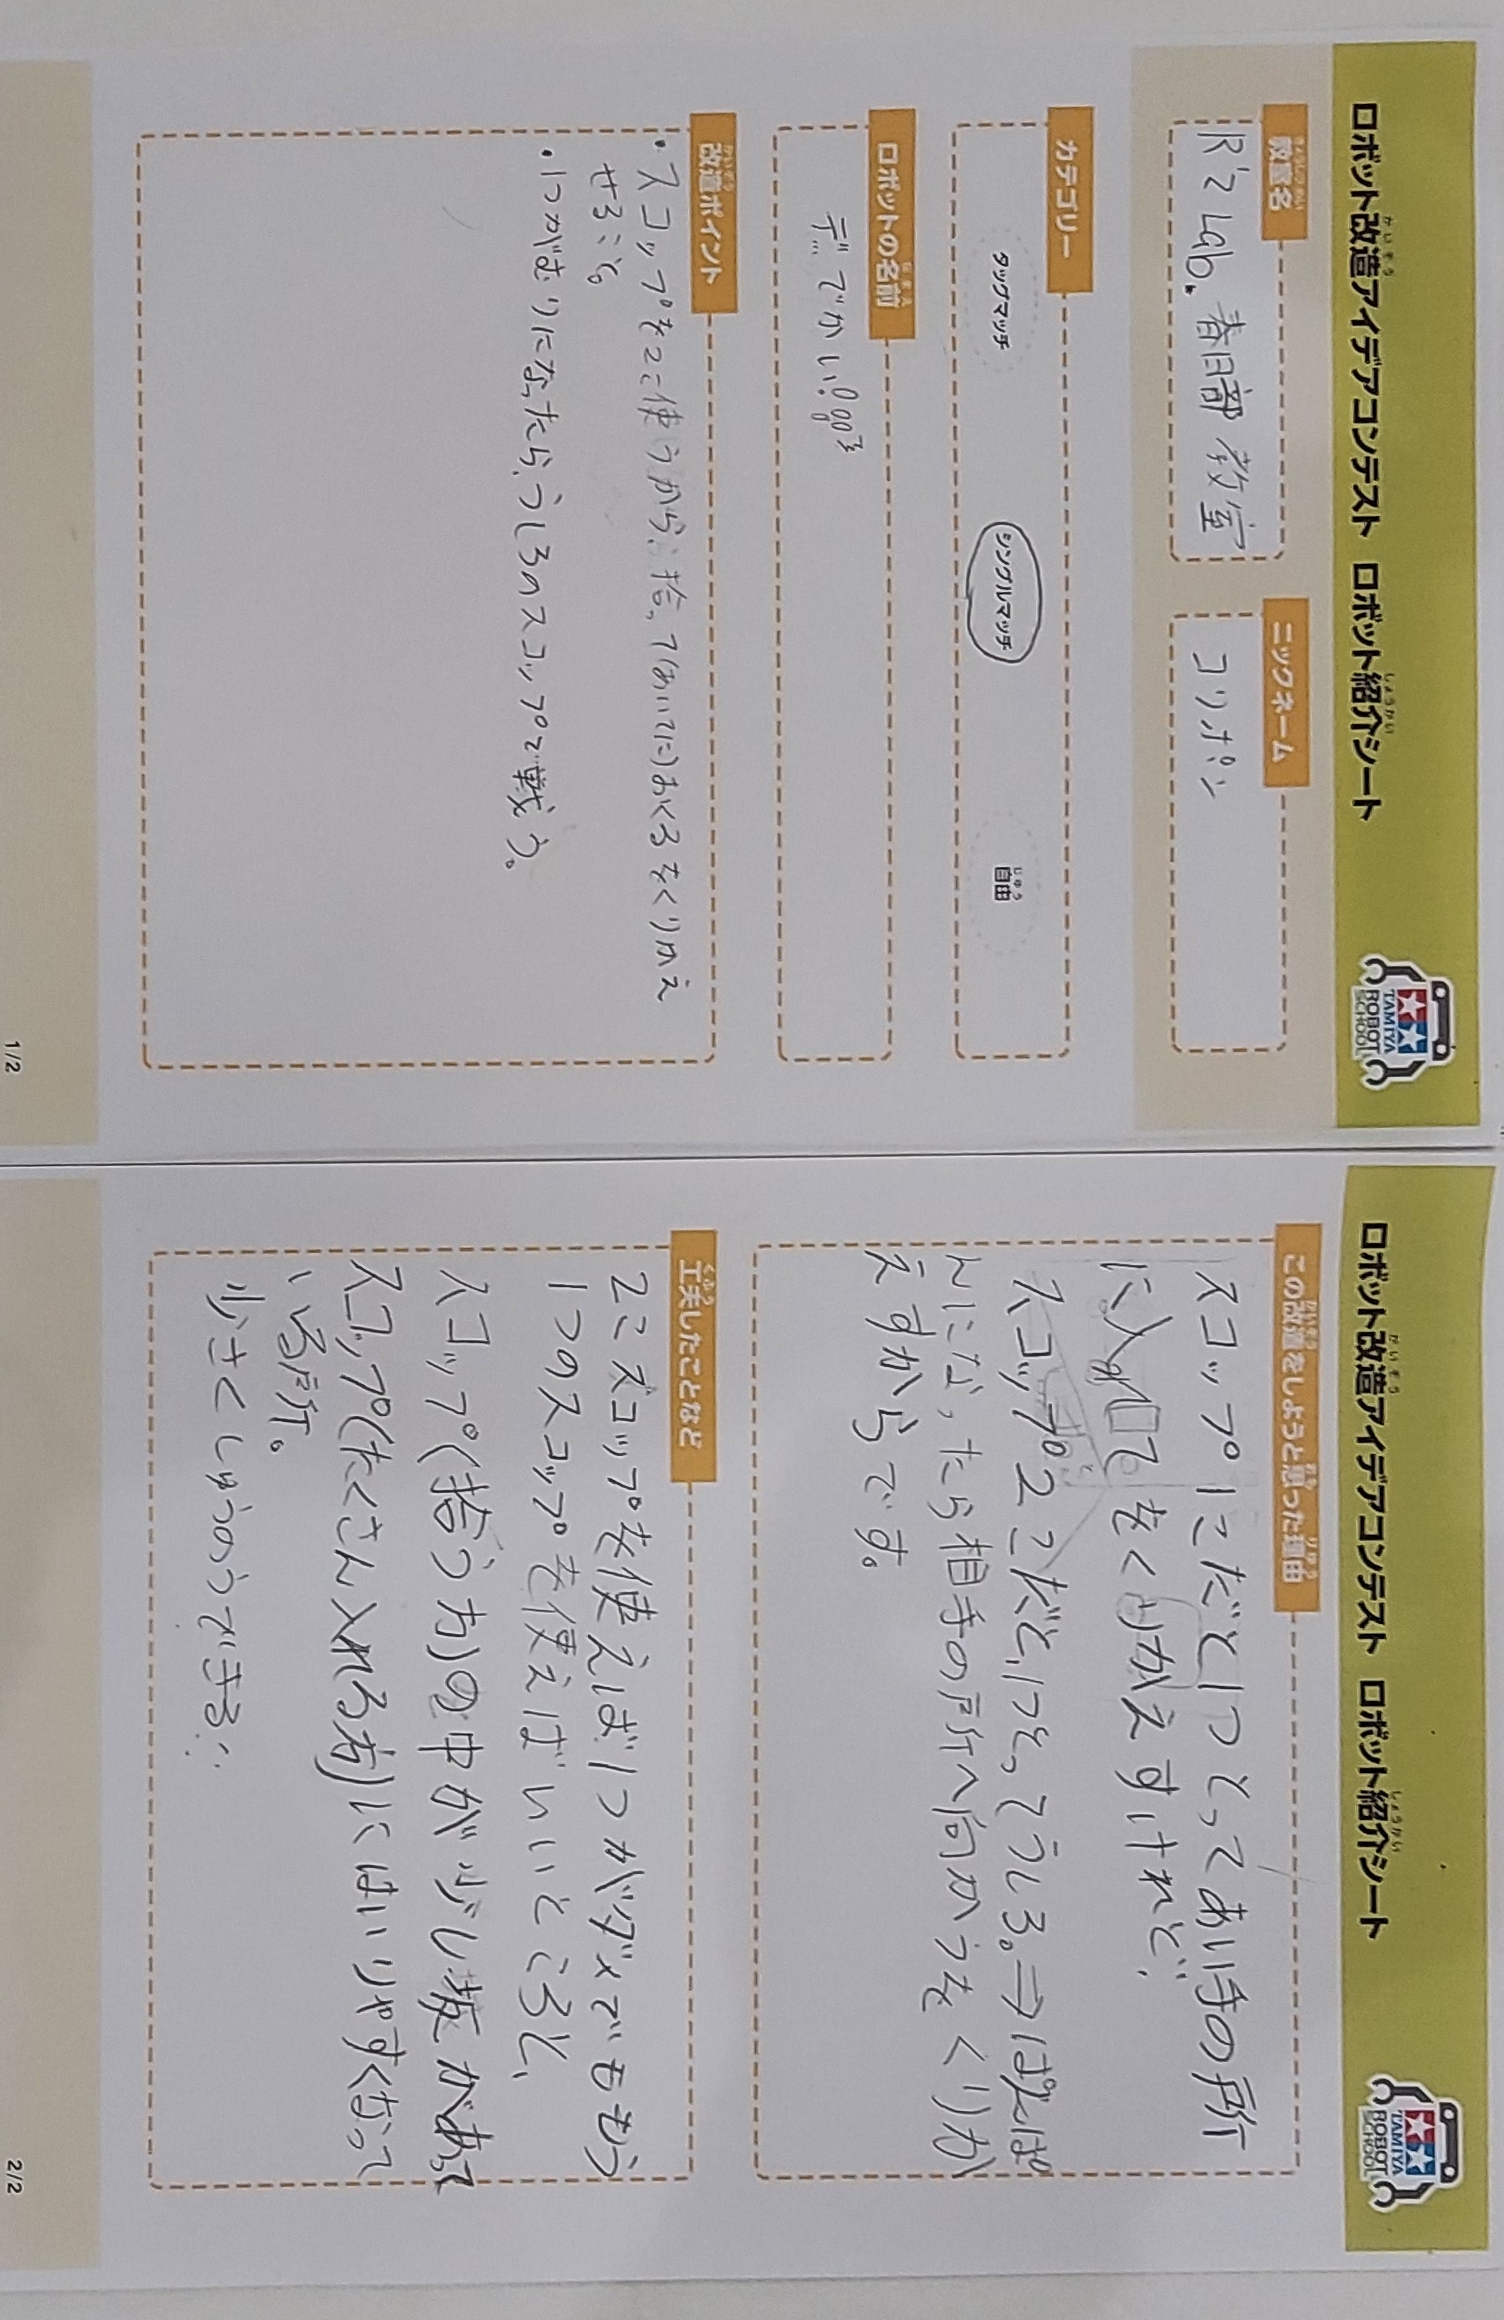 ロボット改造アイデアコンテスト ロボット紹介シート
TAMIYA
ROBOT
SCHOOL
教室名
R'z Lab. 春日部 教室
ニックネーム
コリポン
カテゴリー
タッグマッチ シングルマッチ 自由
ロボットの名前
デ… でかい!
改造ポイント
・スコップを2こ使うから、拾って(あいてに)おくるをくりかえ
せること。
・1つがむりになったら、うしろのスコップで戦う。
1/2
ロボット改造アイデアコンテスト ロボット紹介シート
TAMIYA
ROBOT
SCHOOL
この改造をしようと思った理由
スコップ1こだと1つとってあい手の所
に入れてをくりかえすけれど、
スコップ2こだと、1つとってうしろ。⇒ぱんぱ
んになったら相手の所へ向かうをくりか
えすからです。
工夫したことなど
2こスコップを使えば1つがダメでももう
1つのスコップを使えばいいところと、
スコップ(拾う方)の中が少し坂があって
スコップ(たくさん入れる方)にはいりやすくなって
いる所。
少さくしゅうのうできる
2/2